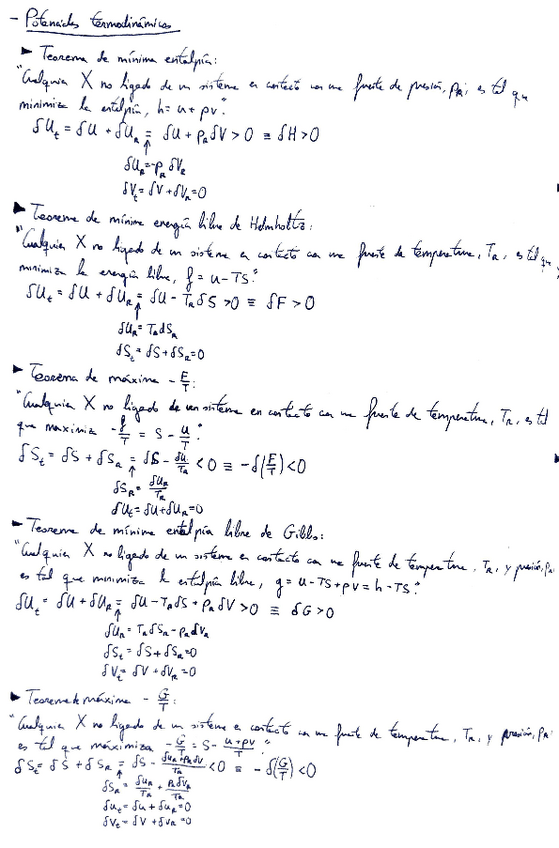 - Potenciales termodinámicos
► Teorema de mínima entalpía:
"Cualquier X no ligado de un sistema en contacto con una fuente de presión, p_R, es tal que
minimiza la entalpía, h = u + pv".
δU_t = δU + δU_R = δU + p_R δV > 0 ≡ δH > 0
↑
δU_R = -p_R δV_R
δV_t = δV + δV_R = 0
► Teorema de mínima energía libre de Helmholtz:
"Cualquier X no ligado de un sistema en contacto con una fuente de temperatura, T_R, es tal que
minimiza la energía libre, f = u - TS".
δU_t = δU + δU_R = δU - T_R δS > 0 ≡ δF > 0
↑
δU_R = T_R dS_R
δS_t = δS + δS_R = 0
► Teorema de máxima - F/T:
"Cualquier X no ligado de un sistema en contacto con una fuente de temperatura, T_R, es tal
que maximiza - f/T = S - u/T".
δS_t = δS + δS_R = δS - δU/T_R < 0 ≡ -δ(F/T) < 0
↑
δS_R = δU_R/T_R
δU_t = δU + δU_R = 0
► Teorema de mínima entalpía libre de Gibbs:
"Cualquier X no ligado de un sistema en contacto con una fuente de temperatura, T_R, y presión, p_R,
es tal que minimiza la entalpía libre, g = u - TS + pv = h - TS".
δU_t = δU + δU_R = δU - T_R δS + p_R δV > 0 ≡ δG > 0
↑
δU_R = T_R δS_R - p_R dV_R
δS_t = δS + δS_R = 0
δV_t = δV + δV_R = 0
► Teorema de máxima - G/T:
"Cualquier X no ligado de un sistema en contacto con una fuente de temperatura, T_R, y presión, p_R
es tal que máximiza - G/T = S - (u + pv)/T".
δS_t = δS + δS_R = δS - (δU + p_R δV)/T_R < 0 ≡ - δ(G/T) < 0
↑
δS_R = δU_R/T_R + p_R δV_R/T_R
δU_t = δU + δU_R = 0
δV_t = δV + δV_R = 0